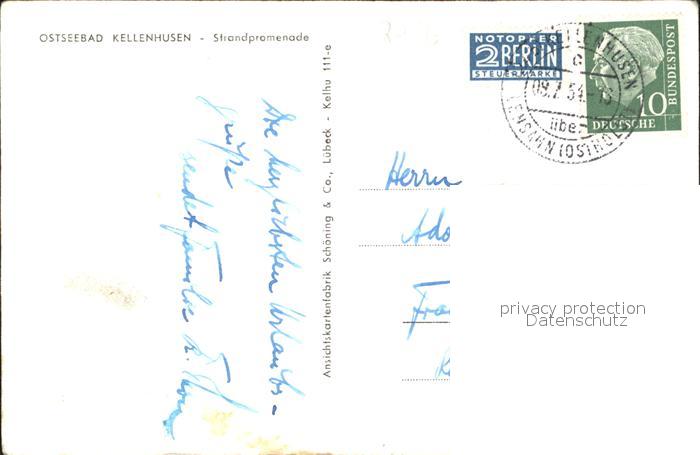 OSTSEEBAD KELLENHUSEN - Strandpromenade
NOTOPFER
2 BERLIN
STEUERMARKE
KELLENHUSEN
c
09.7.54.-18
über
LENSAHN (OSTHOLST)
10
DEUTSCHE
BUNDESPOST
Die herzlichsten Urlaubs-
grüße
sendet Familie
Ansichtskartenfabrik Schöning & Co., Lübeck - Kelhu 111-e
Herrn
Ado
privacy protection
Datenschutz